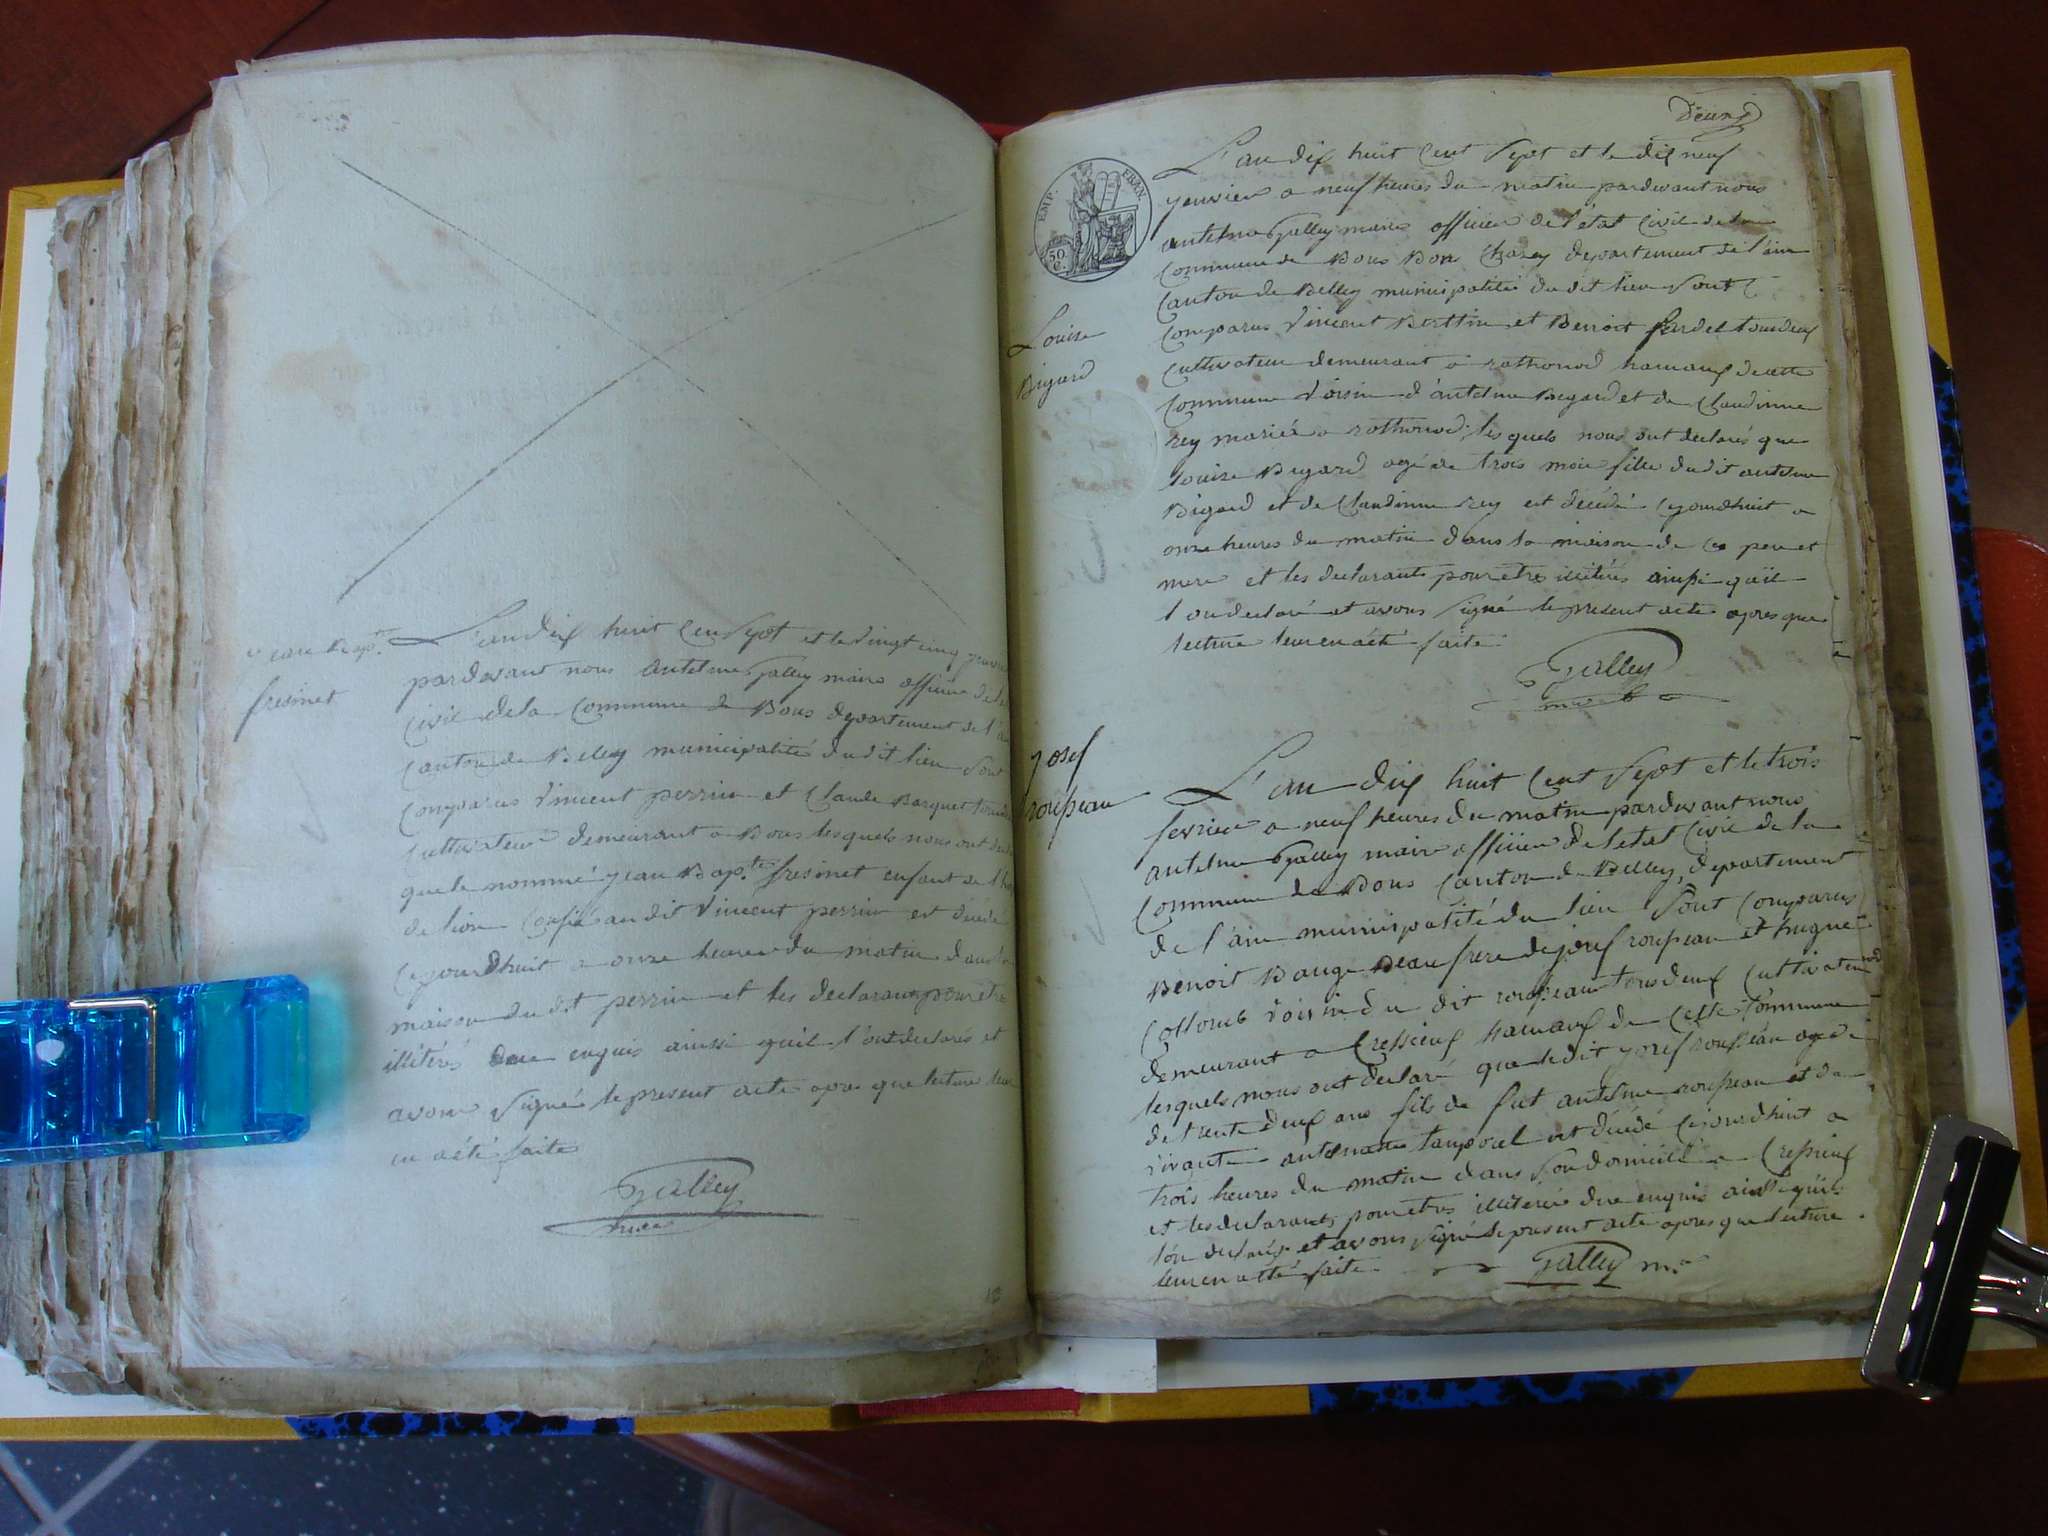 Jean Bap.te
fresinet
L'an dix huit Cent Sept et le vingt cinq janvier
pardevant nous Antelme Galley maire officier de l'état
Civil de la Commune de Bons departement de l'ain
Canton de Belley municipalité du dit lieu Sont
Comparus Vincent perrin et Claude Barquet tous deux
Cultivateur demeurant a Bons lesquels nous ont
que le nommé jean Bap.te fresinet enfant de
de lion Confié au dit Vincent perrin est décédé
Cejourdhuit a onze heures du matin dans la
maison du dit perrin et les declarants pour etre
illitérés de ce enquis ainsi quil l'ont declarés et
avons Signé le present acte apres que lecture leur
en a été faite
Galley
maire
EMP. FRAN.
50 C.
Louise
Bigard
L'an dix huit Cent Sept et le dix neuf
jenvier a neuf heures du matin pardevant nous
antelme Galley maire officier de l'état Civil de la
Commune de Bons Chazey departement de l'ain
Canton de Belley municipalité du dit lieu Sont
Comparus Vincent Berttin et Benoit fardel tous deux
Cultivateur demeurant a rothonod hamaux de cette
Commune Voisin d'antelme Bigard et de Claudinne
rey mariés a rothonod, les quels nous ont declarés que
louise Bigard agé de trois mois fille du dit antelme
Bigard et de Claudinne rey est décédé Cejourdhuit a
onze heures du matin dans la maison de Ces pere et
mere et les declarants pour etre illitérés ainsi quil
l'on declaré et avons Signé le present acte apres que
lecture leur en a été faite.
Galley
josef
roupeau
L'an dix huit Cent Sept et le trois
fevrier a neuf heures du matin pardevant nous
antelme Galley maire officier de l'etat Civil de la
Commune de Bons Canton de Belley, departement
de l'ain municipalité du lieu Sont Comparus
Benoit Bauge Beaufrere de josef roupeau et hugue
Collomb voisin du dit roupeau tous deux Cultivateur
demeurant a Cressieux hamaux de Cette Commune
lesquels nous ont declaré que ledit josef roupeau agé
de trente deux ans fils de fut antelme roupeau et de
vivante antelmette tamporel est décédé Cejourdhuit a
trois heures du matin dans Son domicille a Cressieux
et les declarants pour etre illitérés de ce enquis ainsi quils
l'on declarés et avons Signé le present acte apres que lecture
leur en a été faite.
Galley m.re